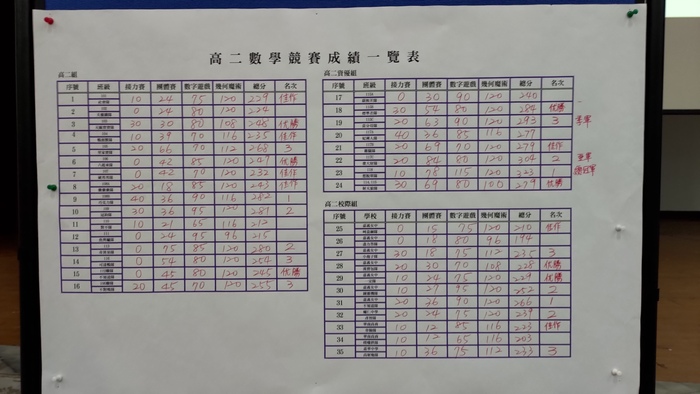 高二數學競賽成績一覽表
高二組
序號 班級 接力賽 團體賽 數字遊戲 幾何魔術 總分 名次
1 10 24 75 120 229 佳作
2 0 24 80 120 224
3 30 30 80 108 248 優勝
4 10 39 70 116 235 佳作
5 20 66 70 112 268 3
6 0 42 85 120 247 優勝
7 0 42 70 120 232 佳作
8 20 18 85 120 243 佳作
9 40 36 90 116 282 1
10 30 36 95 120 281 2
11 10 21 65 116 212
12 0 24 95 96 215
13 0 75 85 120 280 2
14 0 54 80 120 254 3
15 0 45 80 120 245 優勝
16 20 45 70 120 255 3
高二資優組
序號 班級 接力賽 團體賽 數字遊戲 幾何魔術 總分 名次
17 0 30 90 120 240
18 30 54 80 120 284 優勝
19 20 63 90 120 293 3 季軍
20 40 36 85 116 277
21 20 69 70 120 279 佳作
22 20 84 80 120 304 2 亞軍
23 10 78 115 120 323 1 總冠軍
24 30 69 80 100 279 優勝
高二校際組
序號 學校 接力賽 團體賽 數字遊戲 幾何魔術 總分 名次
25 0 15 75 120 210 佳作
26 0 18 80 96 194
27 30 18 75 112 235 3
28 20 30 70 108 228 優勝
29 10 24 75 120 229 優勝
30 10 27 95 120 252 2
31 20 36 90 120 266 1
32 20 24 75 120 239 2
33 10 12 85 116 223 佳作
34 10 12 65 116 203
35 10 36 75 112 233 3